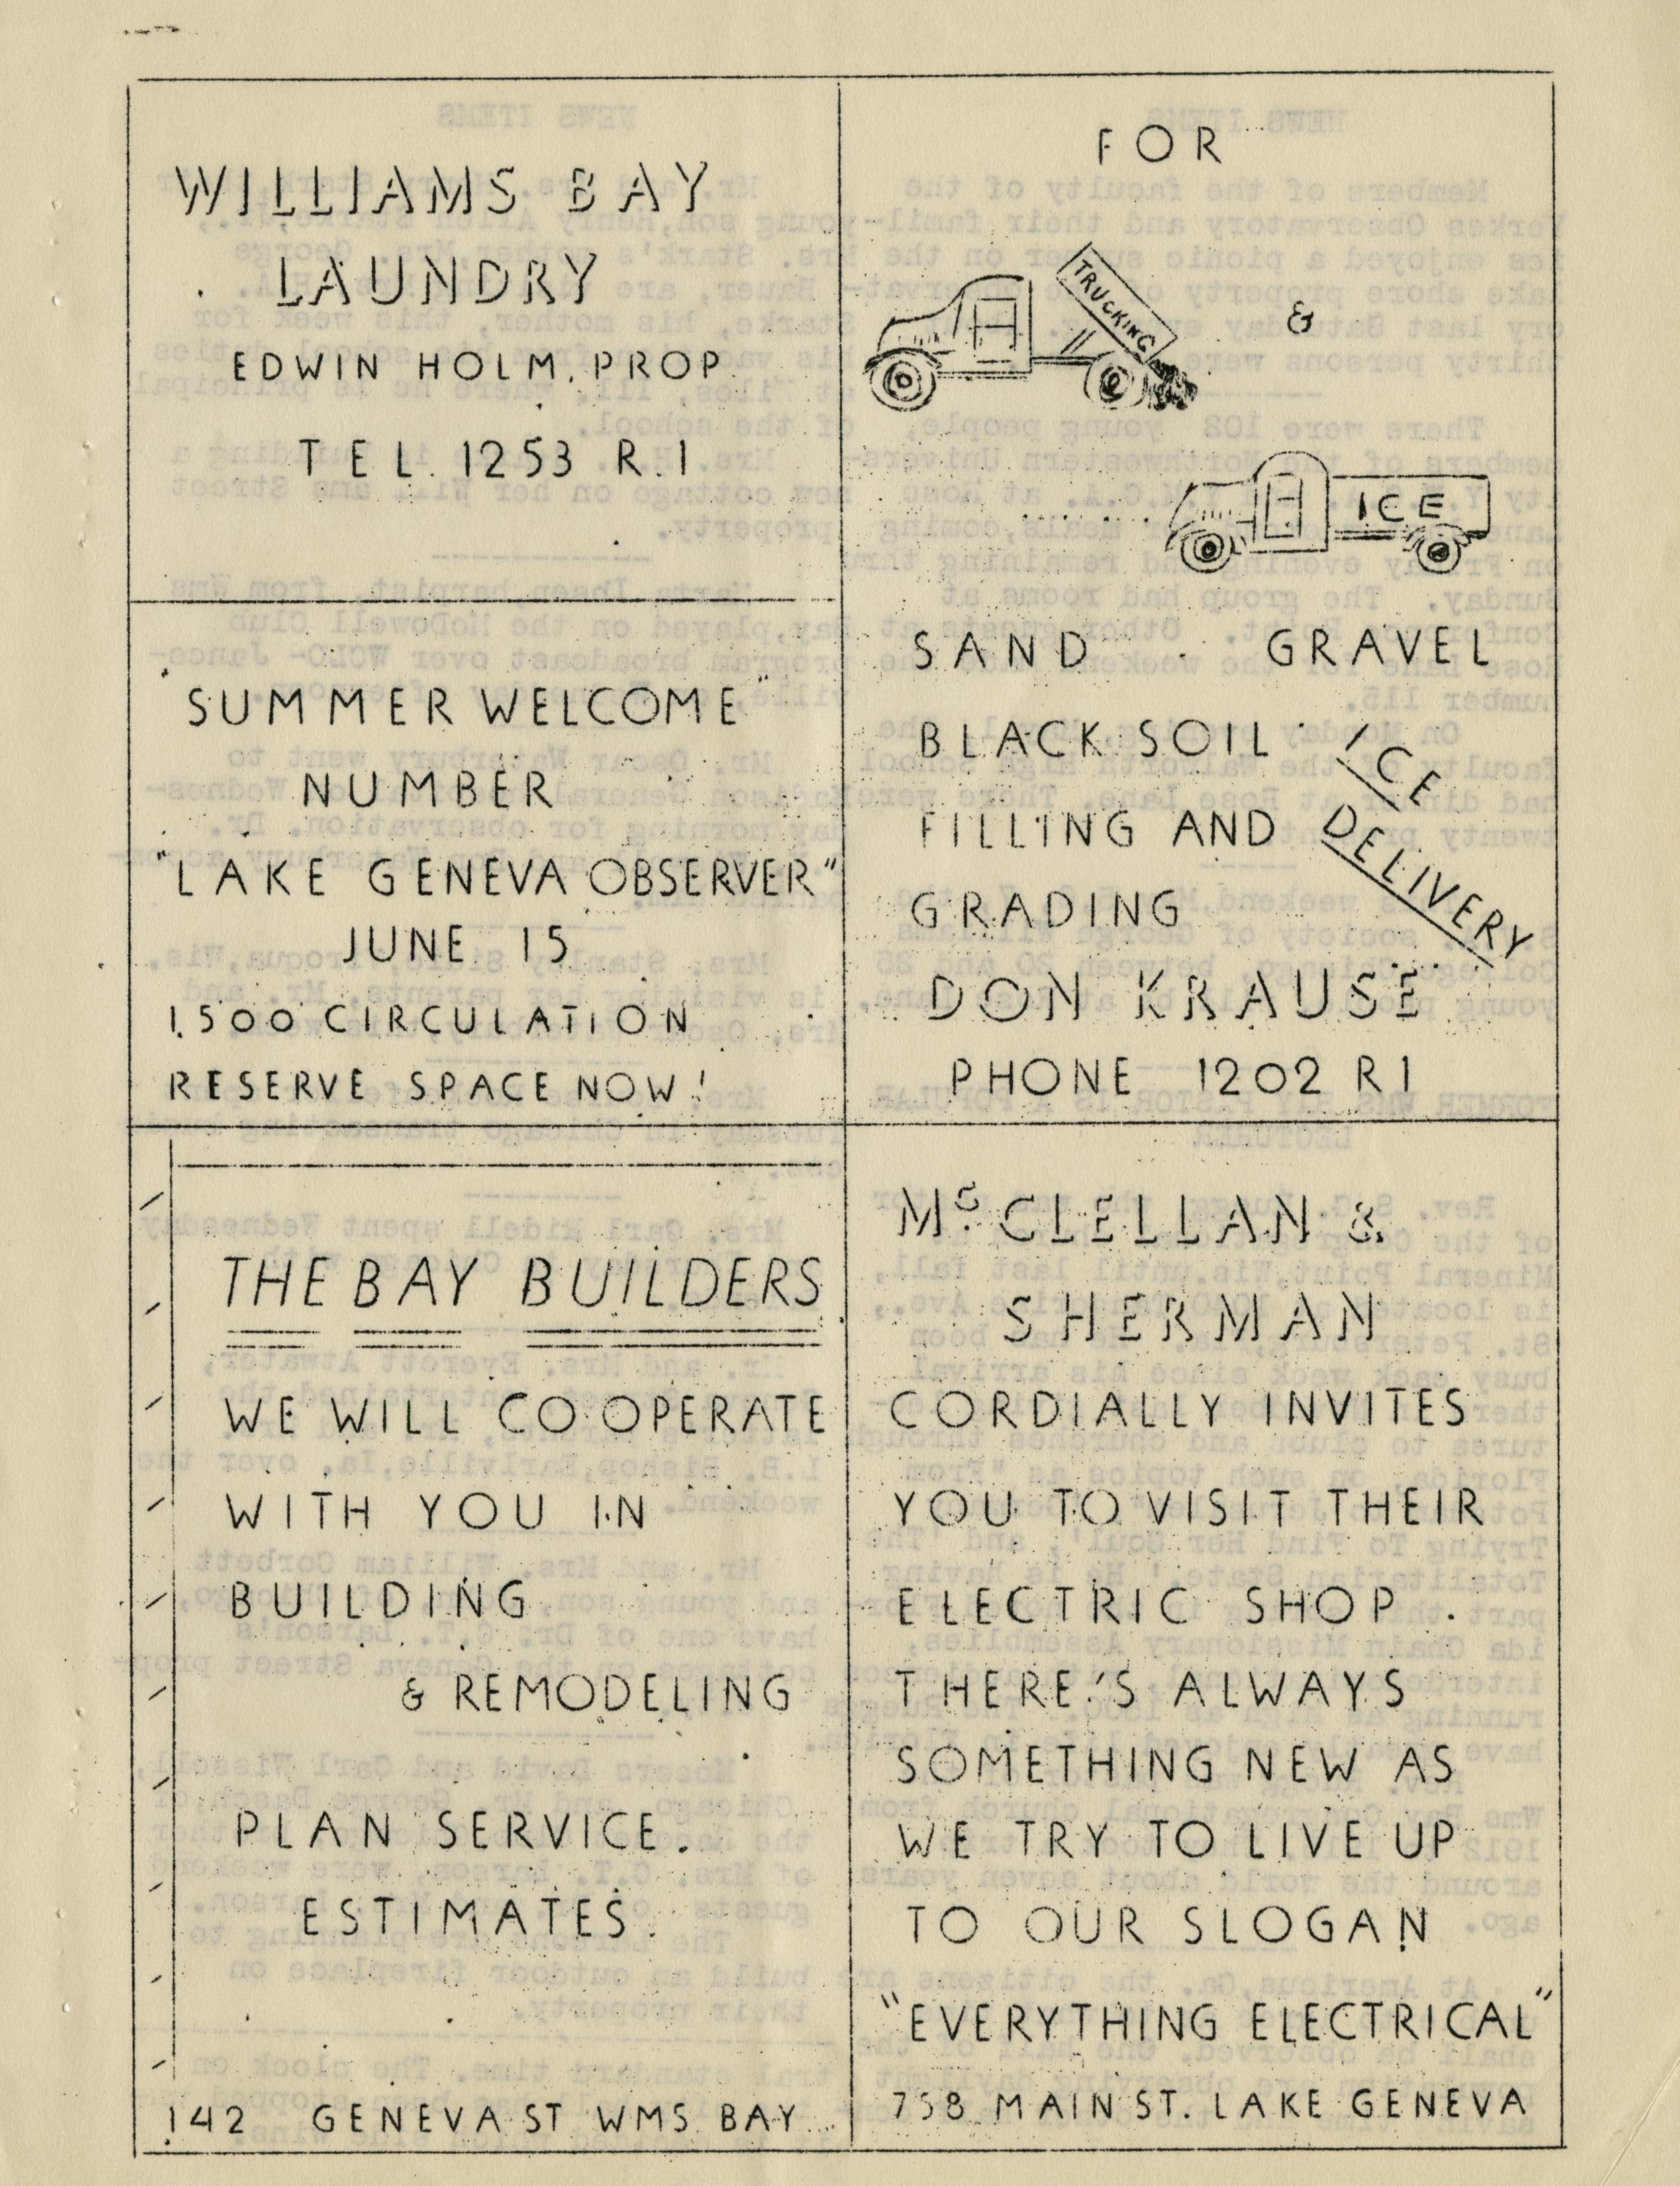 WILLIAMS BAY
LAUNDRY
EDWIN HOLM, PROP.
TEL. 1253 R.1
"SUMMER WELCOME"
NUMBER
"LAKE GENEVA OBSERVER"
JUNE 15
1500 CIRCULATION
RESERVE SPACE NOW!
FOR
TRUCKING
&
ICE
SAND GRAVEL
BLACK SOIL
FILLING AND
GRADING
ICE
DELIVERY
DON KRAUSE
PHONE 1202 R1
THE BAY BUILDERS
WE WILL CO OPERATE
WITH YOU IN
BUILDING
& REMODELING
PLAN SERVICE.
ESTIMATES.
142 GENEVA ST WMS BAY
McCLELLAN &
SHERMAN
CORDIALLY INVITES
YOU TO VISIT THEIR
ELECTRIC SHOP.
THERE'S ALWAYS
SOMETHING NEW AS
WE TRY TO LIVE UP
TO OUR SLOGAN
"EVERYTHING ELECTRICAL"
758 MAIN ST. LAKE GENEVA